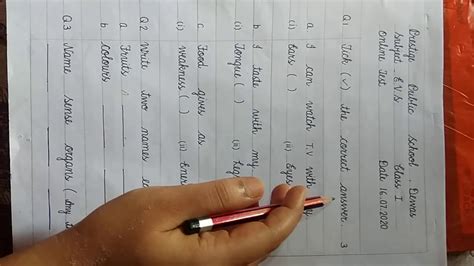 Prestige Public School, Dewas
Subject E.V.S Class I
Online Test Date 16.07.2020
Q1 Tick (✓) the correct answer. 3
a I can watch T.V. with my
(i) Ears ( ) (ii) Eyes
b I taste with my
(i) Tongue ( ) (ii)
c Food gives us
(i) weakness ( ) (ii)
Q2 Write two names
a Fruits
b colours
Q3 Name sense organs (Any